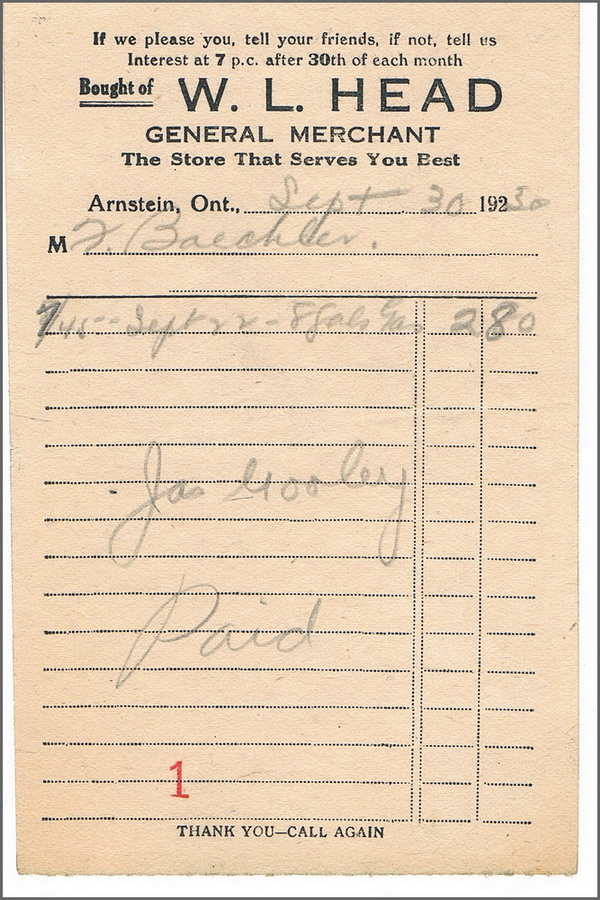 If we please you, tell your friends, if not, tell us
Interest at 7 p.c. after 30th of each month
Bought of W. L. HEAD
GENERAL MERCHANT
The Store That Serves You Best
Arnstein, Ont., Sept 30 192 30
M F. Baechler.
Sept 22 - 8 Gals Gas 2 80
Jas Gooley
Paid
1
THANK YOU—CALL AGAIN